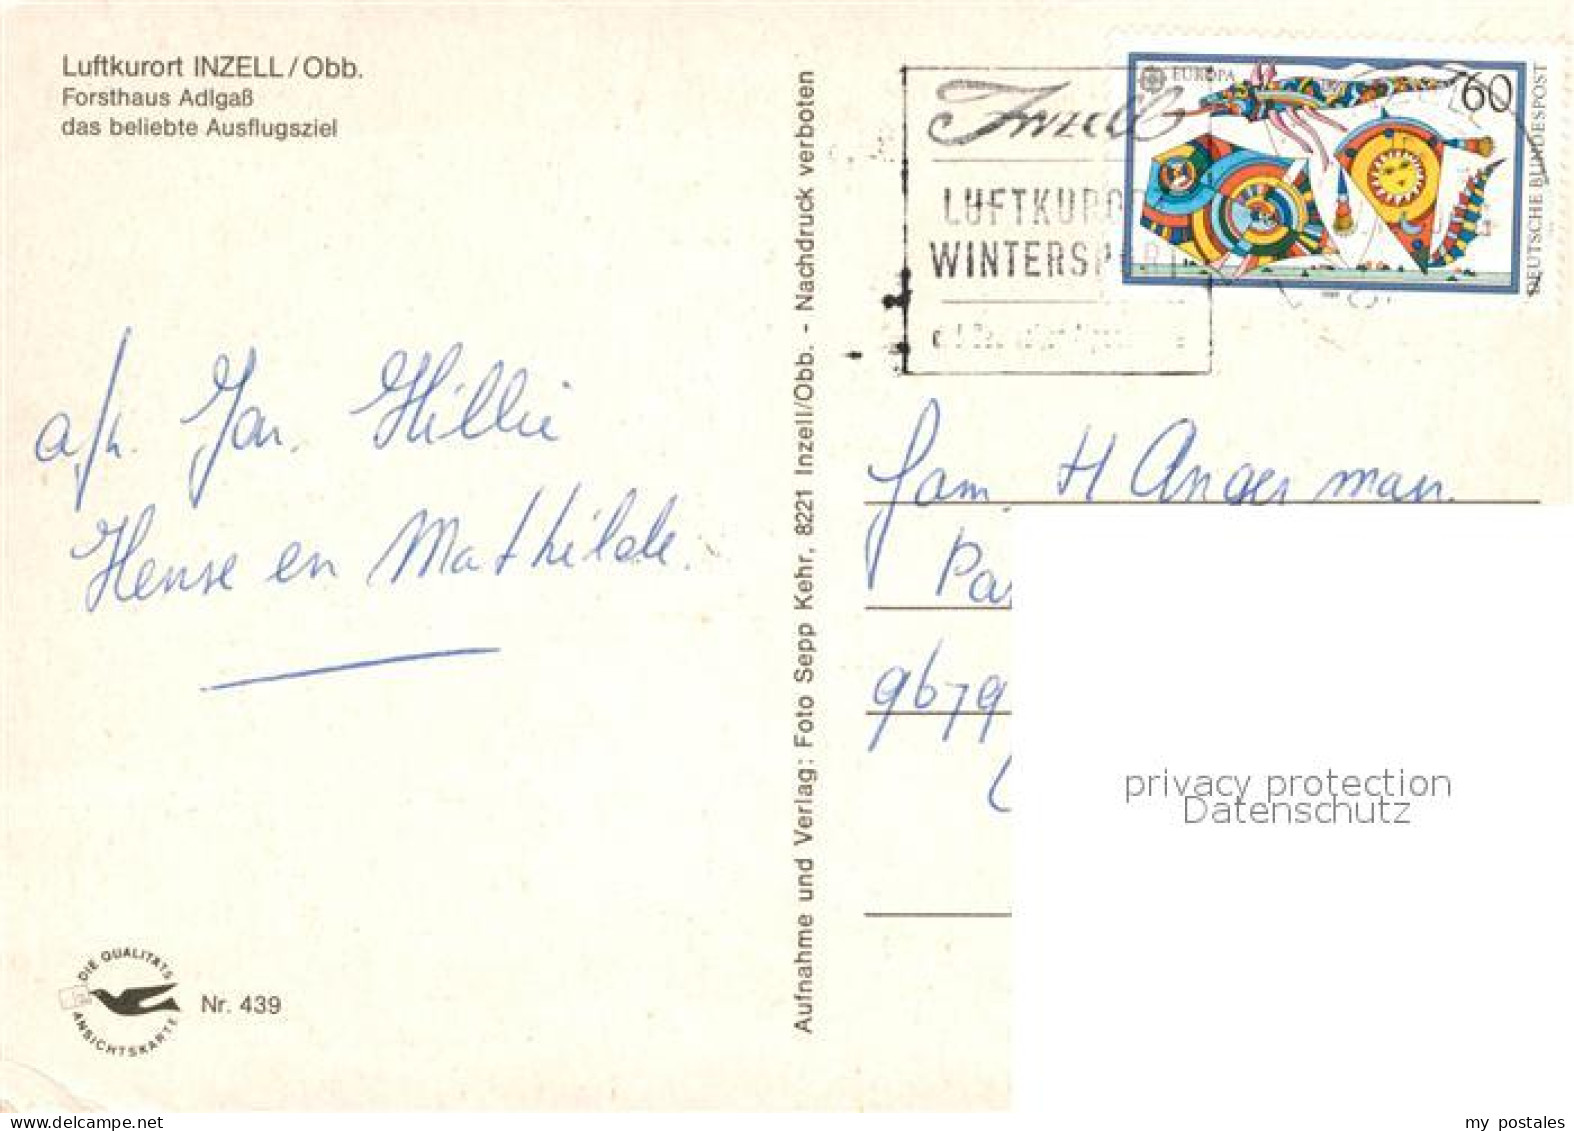 Luftkurort INZELL/Obb.
Forsthaus Adlgaß
das beliebte Ausflugsziel
a/h. Jan. Hillie
Hense en Mathilde.
DIE QUALITÄTS
ANSICHTSKARTE
Nr. 439
Aufnahme und Verlag: Foto Sepp Kehr, 8221 Inzell/Obb. - Nachdruck verboten
Inzell
LUFTKURO
WINTERSPORT
EUROPA
60
DEUTSCHE BUNDESPOST
fam. H Angerman.
Pa
9679
privacy protection
Datenschutz
www.delcampe.net
my_postales